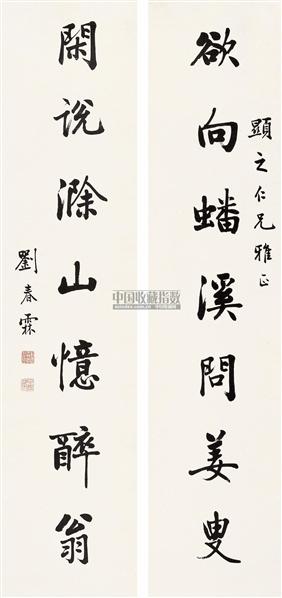 欲向蟠溪問姜叟
顯之仁兄雅正
閑說滁山憶醉翁
劉春霖
中国收藏指数